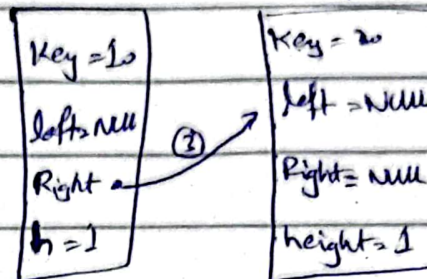 Key = 10
left = Null
Right
h = 1
③
Key = 20
left = Null
Right = Null
height = 1